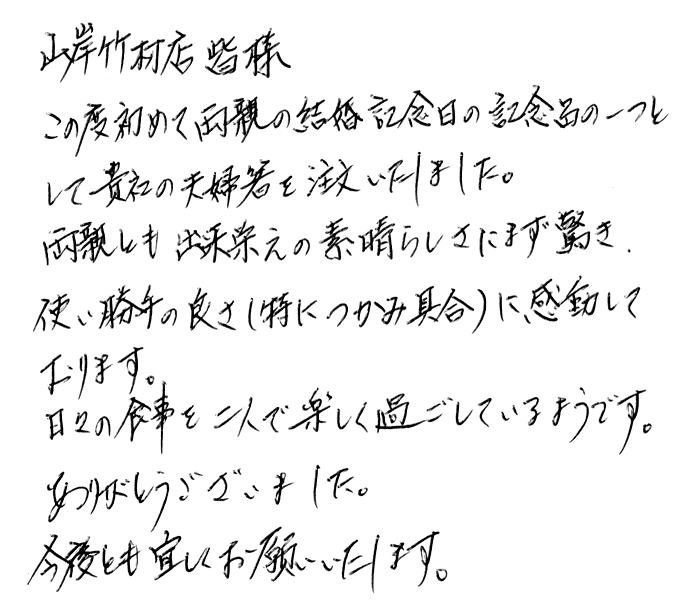 山岸竹材店 皆様
この度初めて両親の結婚記念日の記念品の一つと
して貴社の夫婦箸を注文いたしました。
両親とも出来栄えの素晴らしさにまず驚き、
使い勝手の良さ(特につかみ具合)に感動して
おります。
日々の食事を二人で楽しく過ごしているようです。
ありがとうございました。
今後とも宜しくお願いいたします。